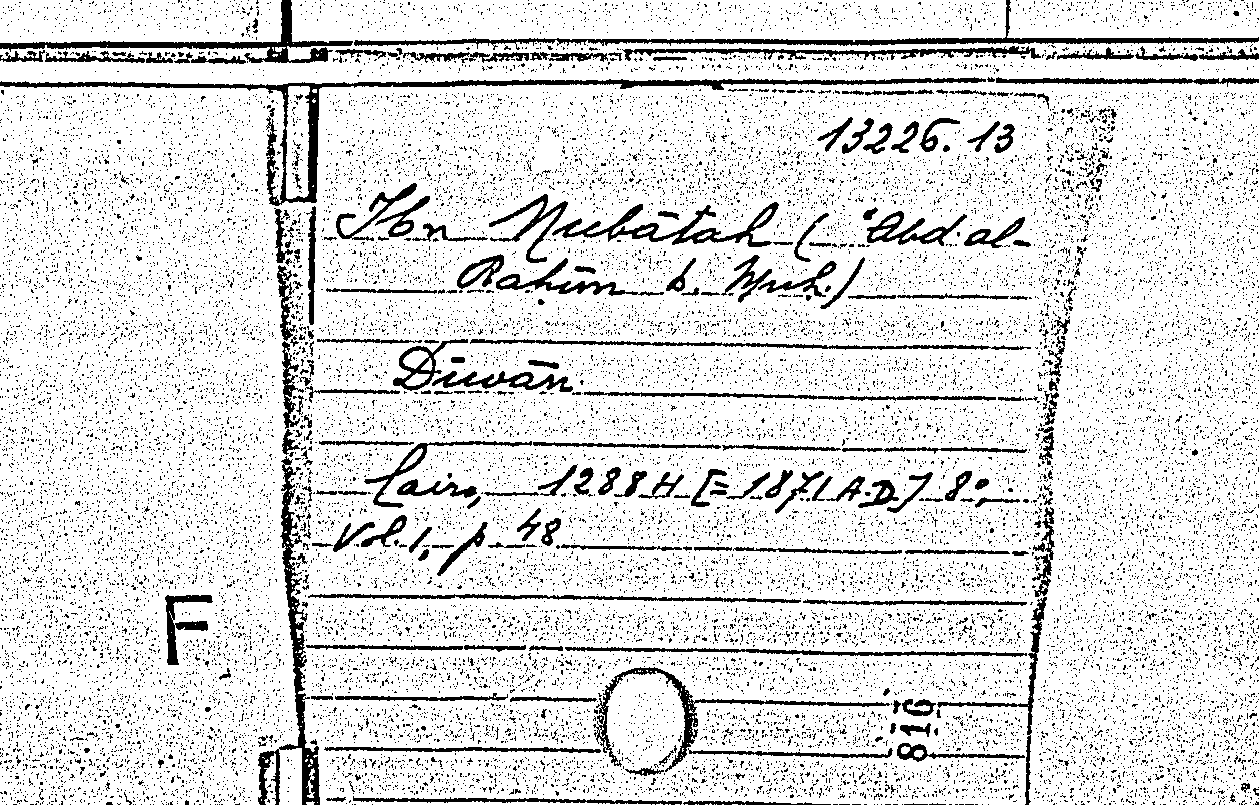 13226.13
Ibn Nubātah (ʿAbd al-
Raḥīm b. Muḥ.)
Dīwān.
Cairo, 1288 H [= 1871 A.D] 8°,
Vol. 1, p. 48
F
816